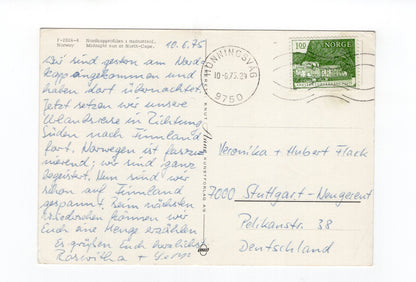 F-2868-4 Nordkapprofilen i midnattsol.
Norway Midnight sun at North-Cape.
10.6.75
Wir sind gestern am Nord-
kapp angekommen und
haben dort übernachtet.
Jetzt setzen wir unsere
Urlaubsreise in Richtung
Süden nach Finnland
fort. Norwegen ist faszi-
nierend; wir sind ganz
begeistert. Nun sind wir
schon auf Finnland
gespannt. Beim nächsten
Wiedersehen können wir
Euch eine Menge erzählen
Es grüßen Euch herzlichst
Roswitha +
HONNINGSVÅG
10-6.75
9750
100 NORGE
Veronika + Hubert
7000 Stuttgart-
Pelikanstr. 38
Deutschland
KUNSTFORLAG AS